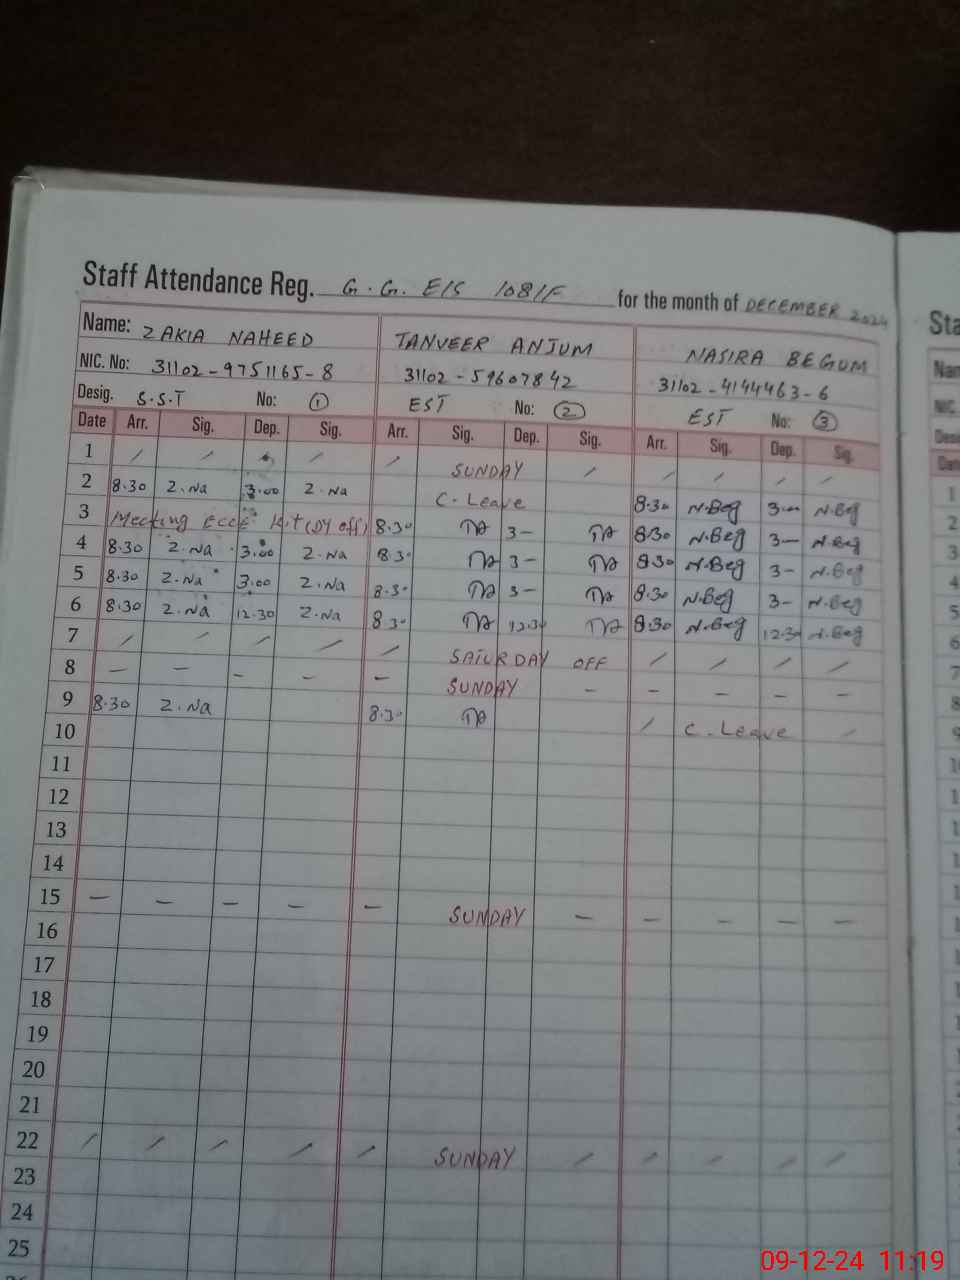 Staff Attendance Reg. G.G. E/S 108/F for the month of DECEMBER 2024
Name: ZAKIA NAHEED TANVEER ANJUM NASIRA BEGUM
NIC. No: 31102-9751165-8 31102-59607842 31102-4144463-6
Desig. S.S.T No: 1 EST No: 2 EST No: 3
Date Arr. Sig. Dep. Sig. Arr. Sig. Dep. Sig. Arr. Sig. Dep. Sig.
1 / / / / / SUNDAY / / / / /
2 8.30 Z.Na 3.00 Z.Na C-Leave 8.30 N.Beg 3- N.Beg
3 Meeting ECCE Kit (Dy off) 8.30 TA 3- TA 8.30 N.Beg 3- N.Beg
4 8.30 Z.Na 3.00 Z.Na 8.30 TA 3- TA 8.30 N.Beg 3- N.Beg
5 8.30 Z.Na 3.00 Z.Na 8.30 TA 3- TA 8.30 N.Beg 3- N.Beg
6 8.30 Z.Na 12.30 Z.Na 8.30 TA 12.30 TA 8.30 N.Beg 12.30 N.Beg
7 / / / / / SATURDAY OFF / / / /
8 - - - - - SUNDAY - - - - -
9 8.30 Z.Na 8.30 TA / C-Leave /
10
11
12
13
14
15 - - - - - SUNDAY - - - - -
16
17
18
19
20
21
22 / / / / / SUNDAY / / / / /
23
24
25
09-12-24 11:19